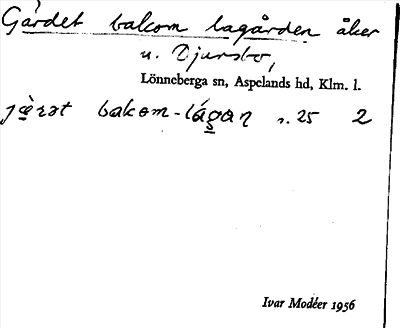 Gärdet bakom lagården åker
u. Djursbo,
Lönneberga sn, Aspelands hd, Klm. l.
bakom-
s. 25 2
Ivar Modéer 1956